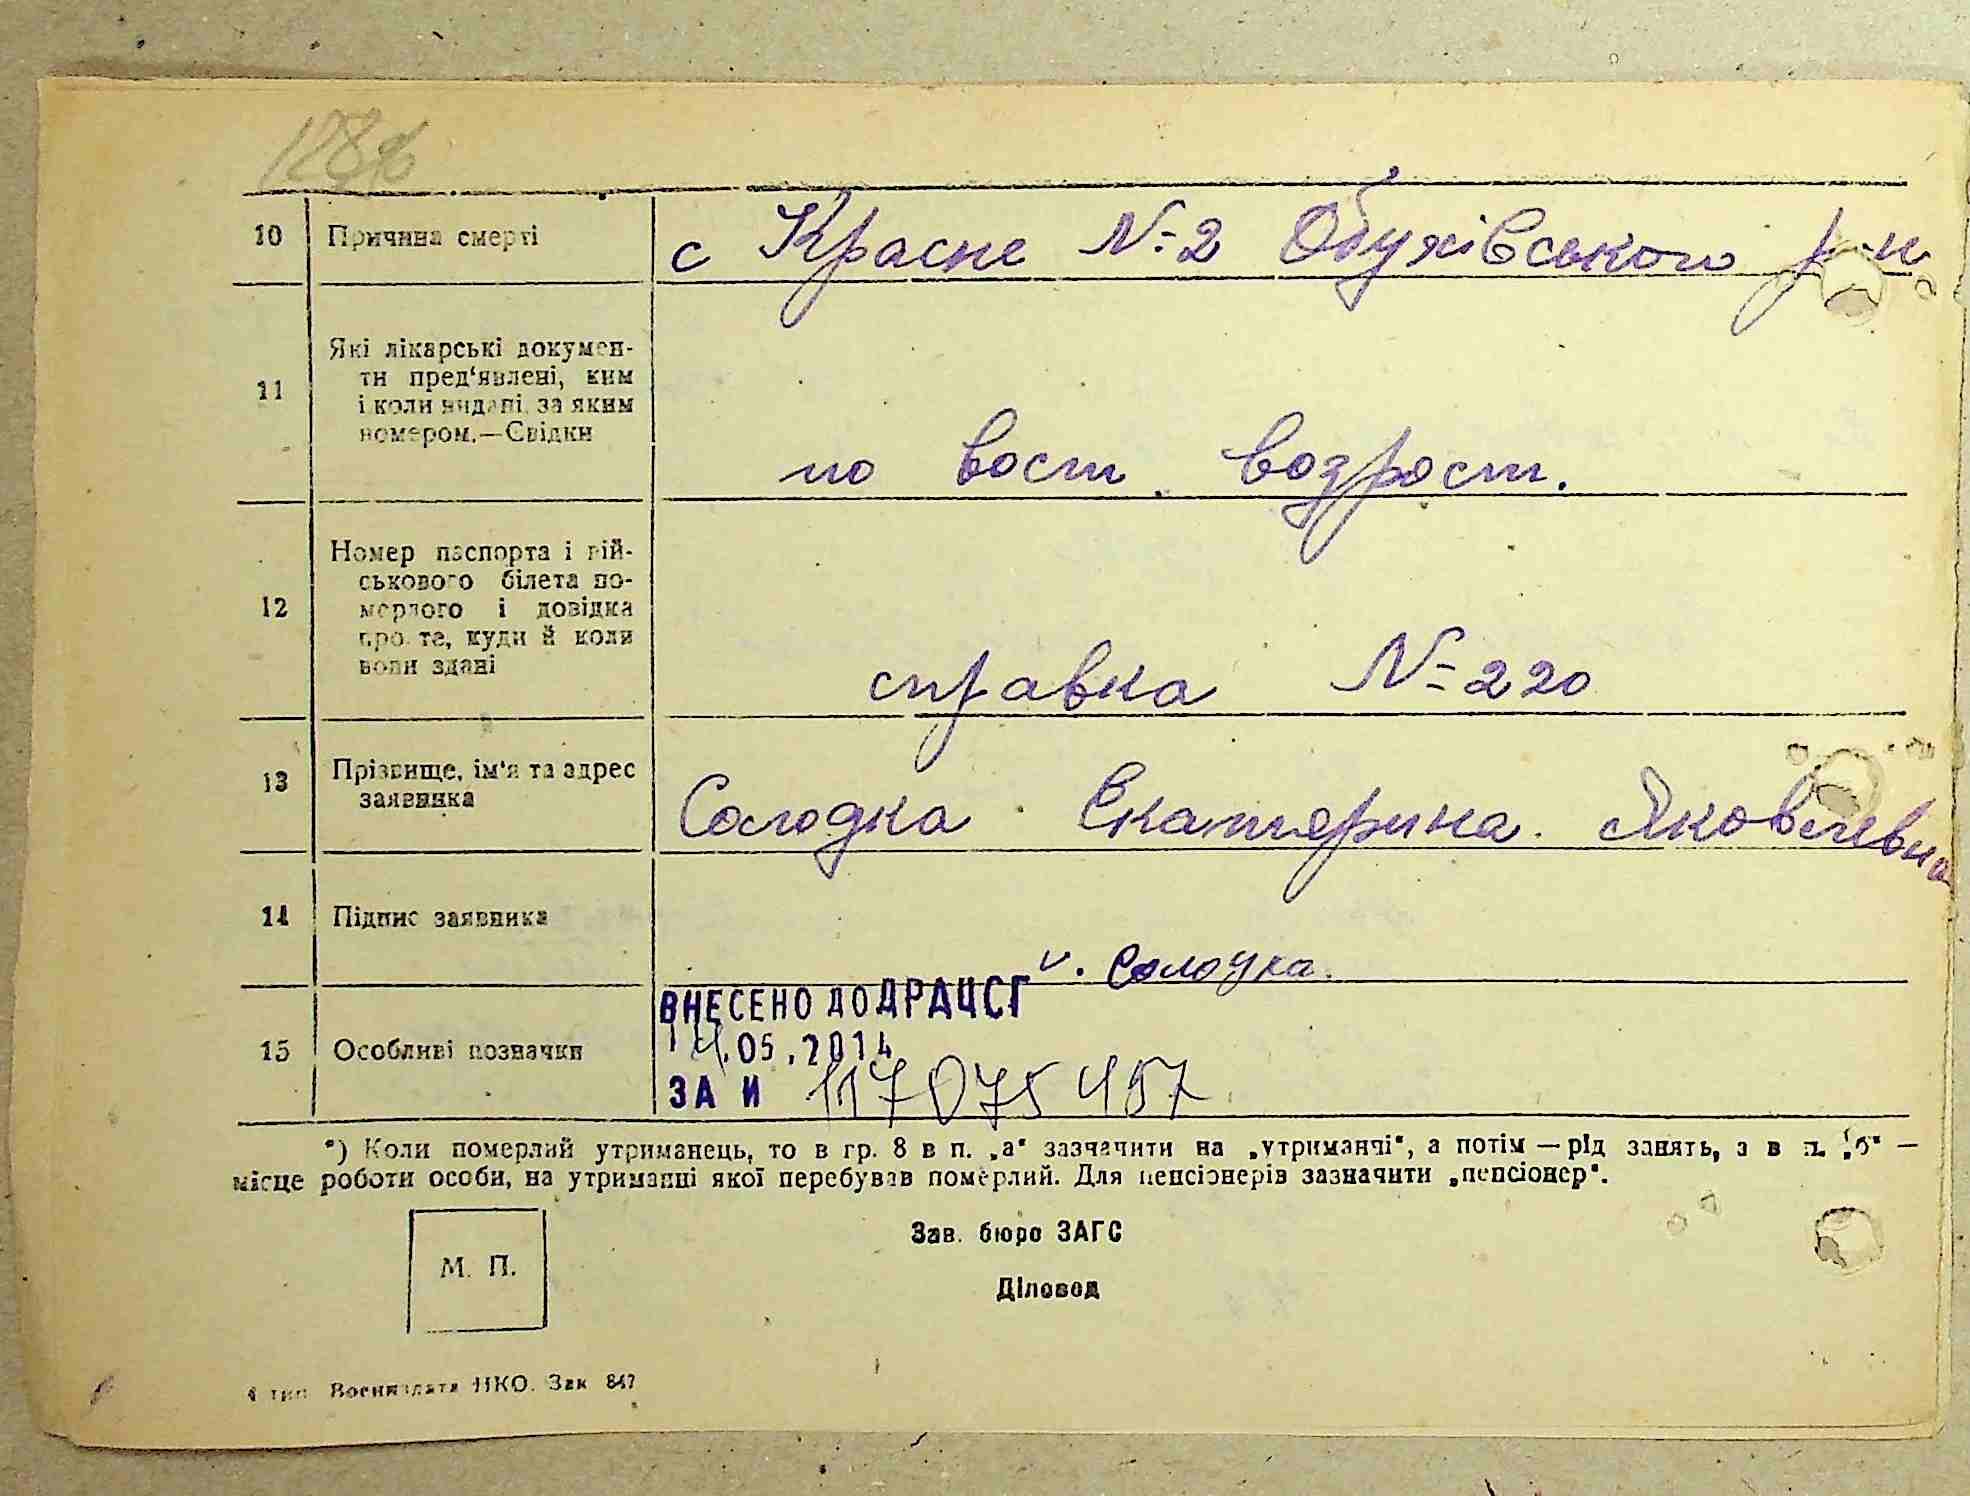 10 Причина смерті с Красне №2 Обухівського р-н
11 Які лікарські докумен-
ти пред'явлені, ким
і коли видані, за яким
номером.—Свідки
по вост. возрост.
12 Номер паспорта і вій-
ськового білета по-
мерлого і довідка
про те, куди й коли
вони здані
справка №220
13 Прізвище, ім'я та адрес
заявника
Солодка Екатерина Яковлевна
14 Підпис заявника
Солодка.
ВНЕСЕНО ДО ДРАЦСГ
15 Особливі позначки 14.05.2014
ЗА И 117075457
*) Коли померлий утриманець, то в гр. 8 в п. „а" зазначити на „утриманчі", а потім — рід занять, а в п. „б" —
місце роботи особи, на утриманні якої перебував померлий. Для пенсіонерів зазначити „пенсіонер".
Зав. бюро ЗАГС
М. П.
Діловод
тип. Воениздата НКО. Зак 847